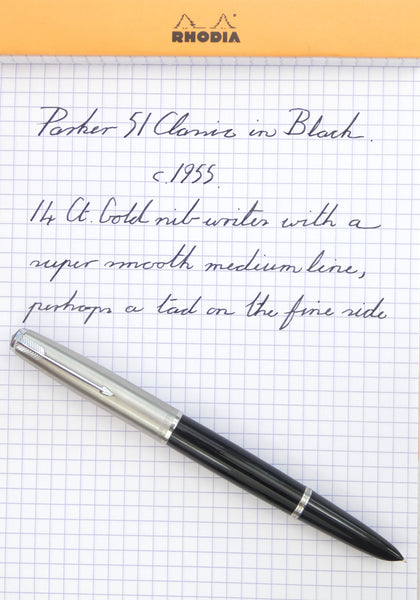 RHODIA
Parker 51 Classic in Black.
c.1955.
14 Ct. Gold nib writes with a
super smooth medium line,
perhaps a tad on the fine side